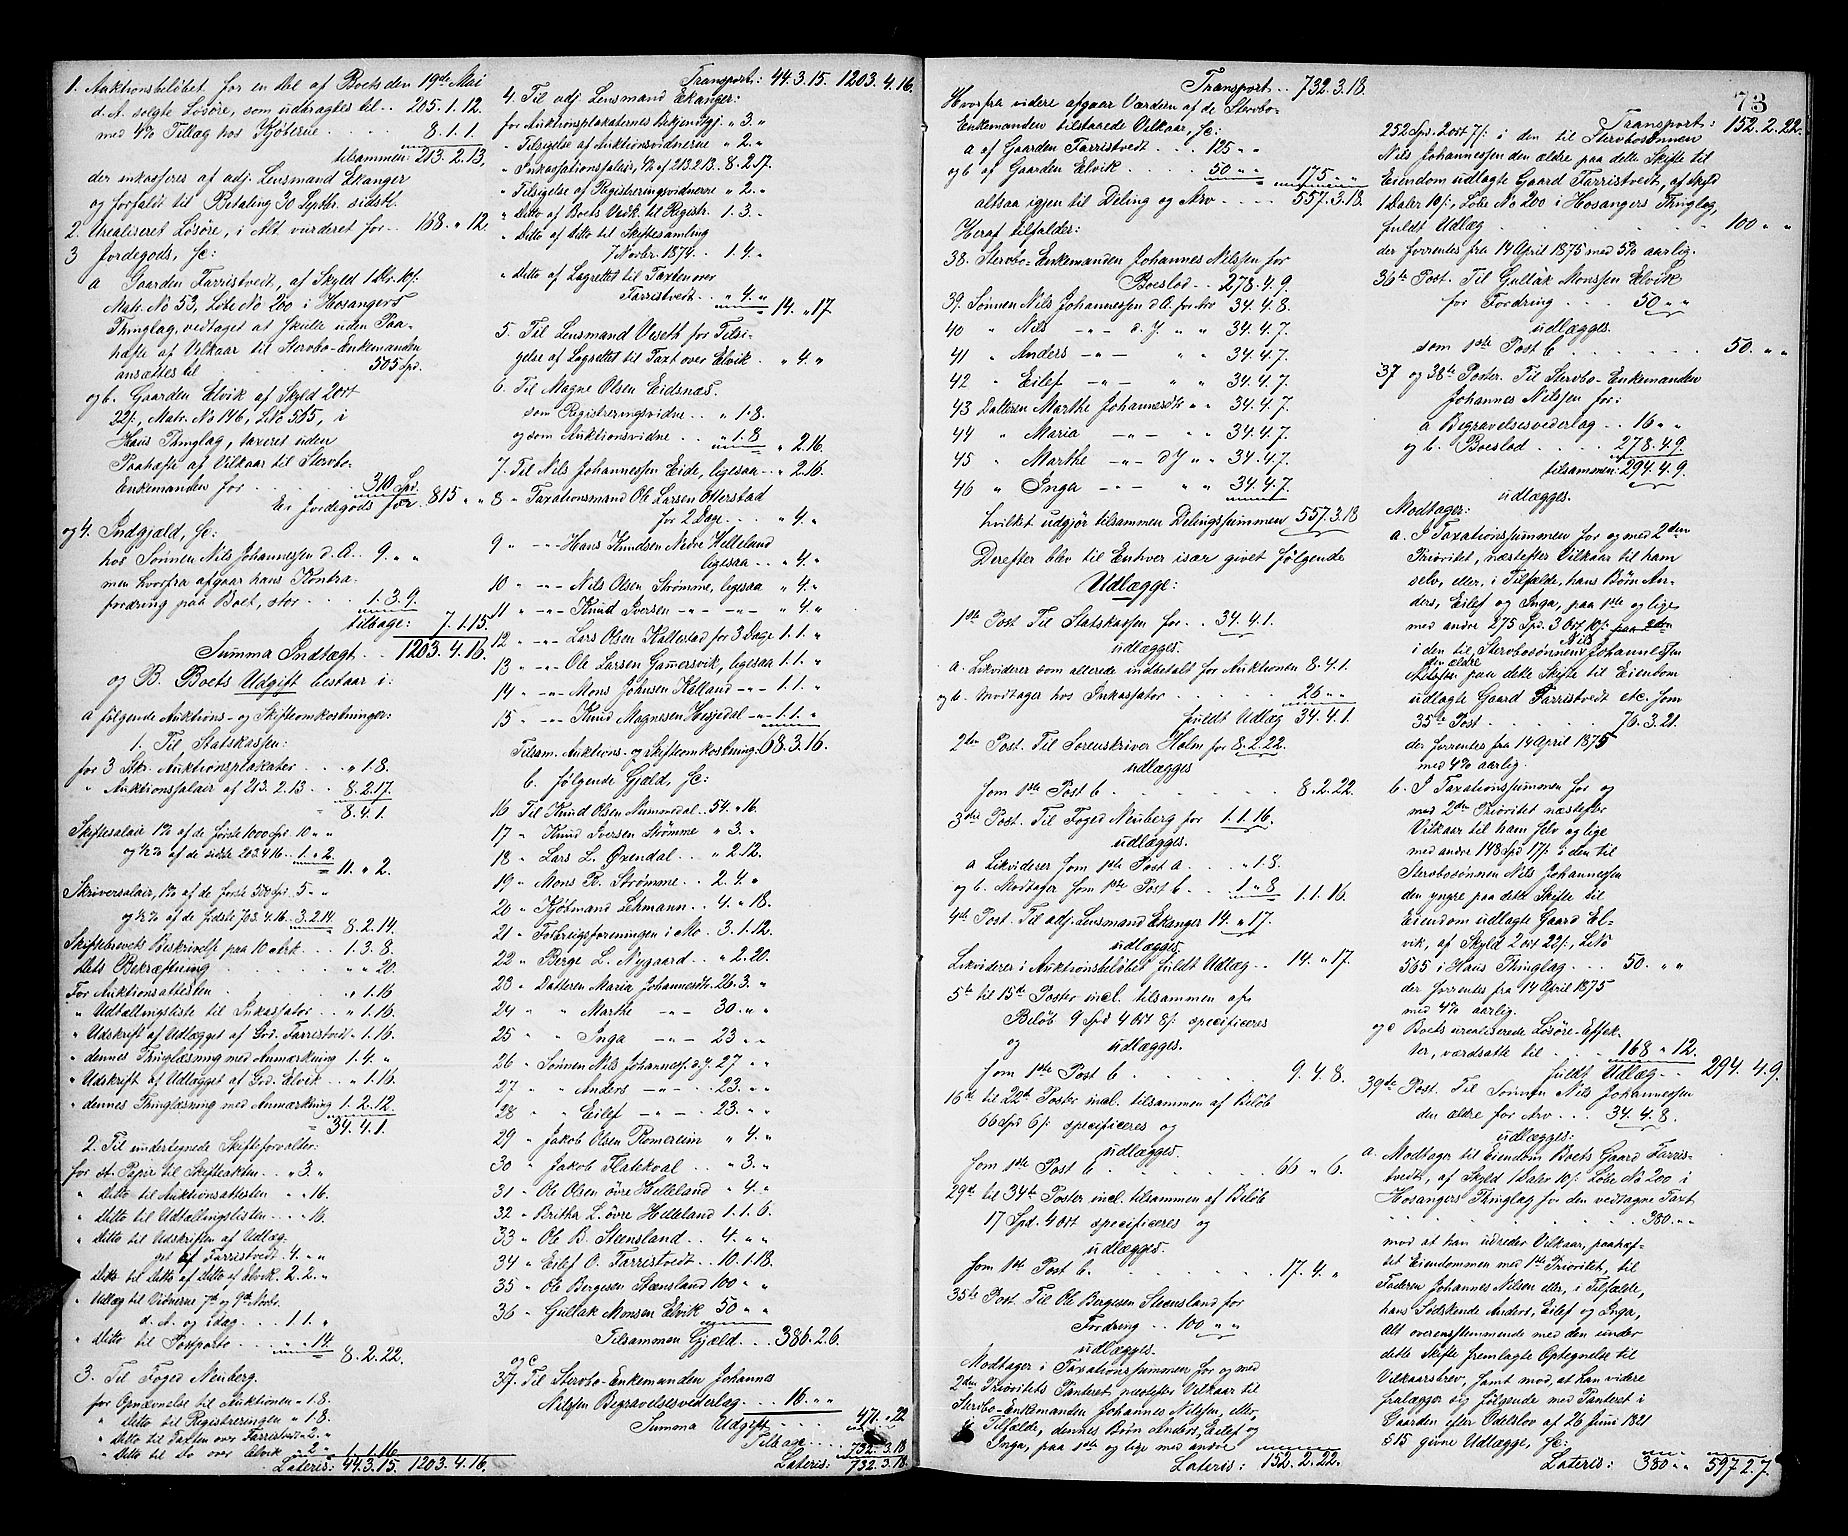 1. Auktionsbeløbet for en Del af Boets den 19de Mai
d. A. solgte Løsøre, som udbragtes til .. 205.1.12.
med 4% Tillæg hos Kjøberne . . . . 8.1.1.
tilsammen: 213.2.13,
der inkasseres af adj. Lensmand Ekanger
og forfaldt til Betaling 30 Septbr. sidstl.
2. Urealiseret Løsøre, i Alt vurderet for .. 168. " 12.
3 Jordegods, jc:
a Gaarden Farristvedt, af Skyld 1 Dlr. 10/,
Matr. No 53, Løbe No 200 i Hosangers
Thinglag, vedtaget at skulle uden Paa-
hæfte af Vilkaar til Stervbo-Enkemanden
ansættes til . . . . . . 505 Spd.
og b. Gaarden Elvik af Skyld 2 ort
22/, Matr. No 146, LNo 565, i
Haus Thinglag, taxeret uden
Paahæfte af Vilkaar til Stervbo-
Enkemanden for . . . . . 310 Spd.
Er Jordegods for . 815 " "
og 4. Indgjæld, jc:
hos Sønnen Nils Johannessen d. Æ. . 9. " "
men hvorfra afgaar hans Kontra-
fordring paa Boet, stor . . . 1.3.9.
tilbage: 7.1.15.
Summa Indtægt . . 1203.4.16.
og B. Boets Udgift bestaar i:
a følgende Auktions- og Skifteomkostninger:
1. Til Statskassen:
for 3 Stkr. Auktionsplakater . . . " 1.8.
" Auktionssalair af 213.2.13 . . 8.2.17.
8.4.1.
Skiftesalair 1% af de første 1000 Spd. 10 " "
og ½% af de sidste 203.4.16. .. 1. " 2.
11. " 2.
Skriversalair, 1% af de første 500 Spd. 5 " "
og ½% af de sidste 703.4.16. . 3.2.14.
8.2.14.
Skiftebrevets Beskrivelse paa 10 Ark . . 1.3.8.
Dets Bekræftning . . . . " " 20.
For Auktionsattesten . . . . " 1.16
" Udtællingsliste til Inkassator . . " 1.16.
" Udskrift af Udlægget af Grd. Farristvedt " 1.16.
" dennes Thinglæsning med Anmærkning 1.4. "
" Udskrift af Udlægget af Grd. Elvik . . " 1.16.
" dennes Thinglæsning med Anmærkning 1.2.12.
34.4.1.
2. Til undertegnede Skifteforvalter:
for st. Papir til Skifteakten . . " 3. "
" Ditto til Auktionsattesten " " 16.
" Ditto til Udtællingslisten . . . " 16.
" Ditto til Udskriften af Udlæg-
get af Farristvedt . 4. " "
" Ditto til Ditto af Ditto af Elvik . 2.2. "
" Udlæg til Vidnerne 7de og 9de Novbr.
d. A. og idag . . . 1.1. "
" Ditto til Postporto . . . " " 14.
8.2.22.
3. Til Foged Neuberg.
for Opnævnelse til Auktionen " 1.8.
" Ditto til Registreringen " 1.8.
" Ditto til Taxten over Farristvedt " 2. "
" Ditto til Do over Elvik " 2 "
1.1.16.
Lateris: 44.3.15. 1203.4.16.
Transport: 44.3.15. 1203.4.16.
4. Til adj. Lensmand Ekanger:
for Auktionsplakaternes Bekjendtgj. " 3. "
" Tilsigelse af Auktionsvidnerne " 2. "
" Inkassationssalair, 4% af 213.2.13. 8.2.17.
" Tilsigelse af Registreringsvidnerne " 2. "
" Ditto af Boets Vedk. til Registr. 1.3. "
" Ditto af Ditto til Skiftesamling
7 Novbr. 1874 . . 1.4. "
" Ditto af Lagrettet til Taxten over
Farristvedt . . " 4. "
14. " 17.
5. Til Lensmand Viseth for Tilsi-
gelse af Lagrettet til Taxt over Elvik . . " 4. "
6. Til Magne Olsen Eidsnæs
som Registreringsvidne . . . " 1.8.
og som Auktionsvidne . . " 1.8
" 2.16.
7. Til Nils Johannessen Eide, ligesaa .. " 2.16.
8 " Taxationsmand Ole Larsen Otterstad
for 2 Dage . . . " 4. "
9 " -"- Hans Knudsen Nedre Helleland
ligesaa . . . " 4. "
10 " -"- Nils Olsen Strømme, ligesaa " 4. "
11 " -"- Knud Iversen -"- -"- " 4. "
12 " -"- Lars Olsen Kallestad for 3 Dage 1.1. "
13 " -"- Ole Larsen Gammersvik, ligesaa 1.1. "
14 " -"- Mons Johnsen Kalland -"- 1.1. "
15 " -"- Knud Magnesen Hesjedal -"- 1.1. "
Tilsam. Auktions- og Skifteomkostning. 68.3.16.
b. følgende Gjæld, jc:
16 Til Knud Olsen Nummedal . 54. " 16.
17 " Knud Iversen Strømme " 3. "
18 " Lars L. Øxendal . . " 2.12.
19 " Mons R. Strømme . . 2.4. "
20 " Kjøbmand Lehmann . . 4. " 18.
21 " Forbrugsforeningen i Mo . 3.1.12.
22 " Børge L. Nygaard . . " 2.20.
23 " Datteren Maria Johannesdtr. 26.3. "
24 " " Marthe -"- 30. " "
25 " " Inga -"- 23 " "
26 " Sønnen Nils Johanness. d.y. 27 " "
27 " " Anders -"- . . 23. " "
28 " " Eilef -"- . . 23. " "
29 " Jakob Olsen Romereim " 4. "
30 " Jakob Flatekval . . " 3. "
31 " Ole Olsen øvre Helleland " 4. "
32 " Britha L. øvre Helleland 1.1.6.
33 " Ole B. Steensland . . 4. " "
34 " Eilef O. Farristvedt . . 10.1.18.
35 " Ole Bergesen Stensland 100 " "
36 " Gullak Monsen Elvik 50 " "
Tilsammen Gjæld . . . 386.2.6.
og c
37. Til Stervbo-Enkemanden Johannes
Nilssen Begravelsesvederlag . . . 16. " "
Summa Udgift . . . 471. " 22
Tilbage . . . 732.3.18
Lateris: 732.3.18.
73
Transport . . 732.3.18.
Hvorfra videre afgaar Værdien af de Stervbo-
Enkemanden tilstaaede Vilkaar, jc:
a af Gaarden Farristvedt . . 125 " "
og b af Gaarden Elvik . . . . 50 " "
175 " "
altsaa igjen til Deling og Arv . . . . 557.3.18.
Heraf tilfalder:
38. Stervbo-Enkemanden Johannes Nilssen for
Boeslod . . 278.4.9.
39. Sønnen Nils Johannessen d. Æ. for Arv 34.4.8.
40 " Nils -"- d. Y. " " 34.4.7.
41 " Anders -"- " " 34.4.7.
42 " Eilef -"- " " 34.4.7.
43 Datteren Marthe Johannesdtr " " 34.4.7.
44 " Maria -"- " " 34.4.7.
45 " Marthe -"- d Y " " 34.4.7.
46 " Inga -"- " " 34.4.7.
hvilket udgjør tilsammen Delingssummen 557.3.18
Derefter blev til Enhver især givet følgende
Udlægge:
1ste Post Til Statskassen for . . 34.4.1.
udlægges.
a. Likviderer som allerede indbetalt for Auktionen 8.4.1.
og b. Modtager hos Inkassator . . . . . 26 " "
fuldt Udlæg 34.4.1.
2den Post. Til Sorenskriver Holm for 8.2.22.
udlægges
som 1ste Post b . . . . . . 8.2.22.
3die Post. Til Foged Neuberg for 1.1.16.
udlægges.
a Likviderer som 1ste Post a . . . " 1.8.
og b. Modtager som 1ste Post b . . . 1 " 8
1.1.16.
4de Post. Til adj. Lensmand Ekanger 14. " 17.
udlægges
Likvideres i Auktionsbeløbet fuldt Udlæg . . 14. " 17.
5te til 15de Poster incl. tilsammen af
Beløb 9 Spd 4 ort 8/ specificeres
og udlægges.
som 1ste Post b . . . . . . 9.4.8.
16de til 22de Poster incl. tilsammen af Beløb
66 Spd 6/ specificeres og
udlægges.
som 1ste Post b . . . . . . 66 " 6.
29de til 34te Poster incl. tilsammen af Beløb
17 Spd. 4 ort specificeres og
udlægges.
som 1ste Post b. . . . . . 17.4. "
35te Post. Til Ole Bergesen Steensland for
Fordring . . 100 " "
udlægges.
Modtager i Taxationssummen for og med
2den Prioritets Panteret, næstefter Vilkaar til
Stervbo-Enkemanden Johannes Nilssen, eller,
i Tilfælde, dennes Børn Anders, Eilef og
Inga, paa 1ste og lige med andre
Lateris: 152.2.22.
Transport: 152.2.22.
252 Spd. 2 ort 7/ i den til Stervbosønnen
Nils Johannessen den ældre paa dette Skifte til
Eiendom udlagte Gaard Farristvedt, af Skyld
1 Daler 10/, Løbe No 200 i Hosangers Thinglag,
fuldt Udlæg . . . . . . 100 " "
der forrentes fra 14 April 1875 med 5% aarlig.
36te Post. Til Gullak Monssen Elvik
for Fordring . . . 50 " "
udlægges.
som 1ste Post b . . . . . . 50. " "
37 og 38te Poster. Til Stervbo-Enkemanden
Johannes Nilssen for:
a Begravelsesvederlag . . 16 " "
og b. Boeslod . . . . 278.4.9.
tilsammen 294.4.9.
udlægges.
Modtager:
a. I Taxationssummen for og med 2den
Prioritet, næstefter Vilkaar til ham
selv, eller, i Tilfælde, hans Børn An-
ders, Eilef og Inga, paa 1ste og lige
med andre 275 Spd. 3 Ort 10/ paa 2den
i den til Stervbosønnen Nils Johannessen
den ældre paa dette Skifte til Eiendom
udlagte Gaard Farristvedt etc. som
35te Post . . . . . . 76.3.21.
der forrentes fra 14 April 1875
med 4% aarlig.
b. I Taxationssummen for og
med 2den Prioritet næstefter
Vilkaar til ham selv og lige
med andre 148 Spd 17/ i den til
Stervbosønnen Nils Johannessen
den yngre paa dette Skifte til
Eiendom udlagte Gaard El-
vik, af Skyld 2 ort 22/, LNo
565 i Haus Thinglag . . . 50. " "
der forrentes fra 14 April 1875
med 4% aarlig.
og c Boets urealiserede Løsøre-Effek-
ter, værdsatte til . . . 168 " 12.
fuldt Udlæg . . 294.4.9.
39te Post. Til Sønnen Nils Johannessen
den ældre for Arv . . . 34.4.8.
udlægges:
a. Modtager til Eiendom Boets Gaard Farris-
tvedt, af Skyld 1 Daler 10/ Løbe No 200 i
Hosangers Thinglag for den vedtagne Taxt
. . . . . . 380. " "
mod at han udreder Vilkaar, paahæf-
tet Eiendommen med 1ste Prioritet, til
Faderen Johannes Nilsen eller, i Tilfælde,
hans Sødskende Anders, Eilef og Inga,
Alt overensstemmende med den under
dette Skifte fremlagte Optegnelse til
Vilkaarsbrev, samt mod, at han videre
fralægger sig følgende med Panteret i
Gaarden efter Odelslov af 26 Juni 1821
§ 15 givne Udlægge, jc:
Lateris: 380 " " 597.2.7.